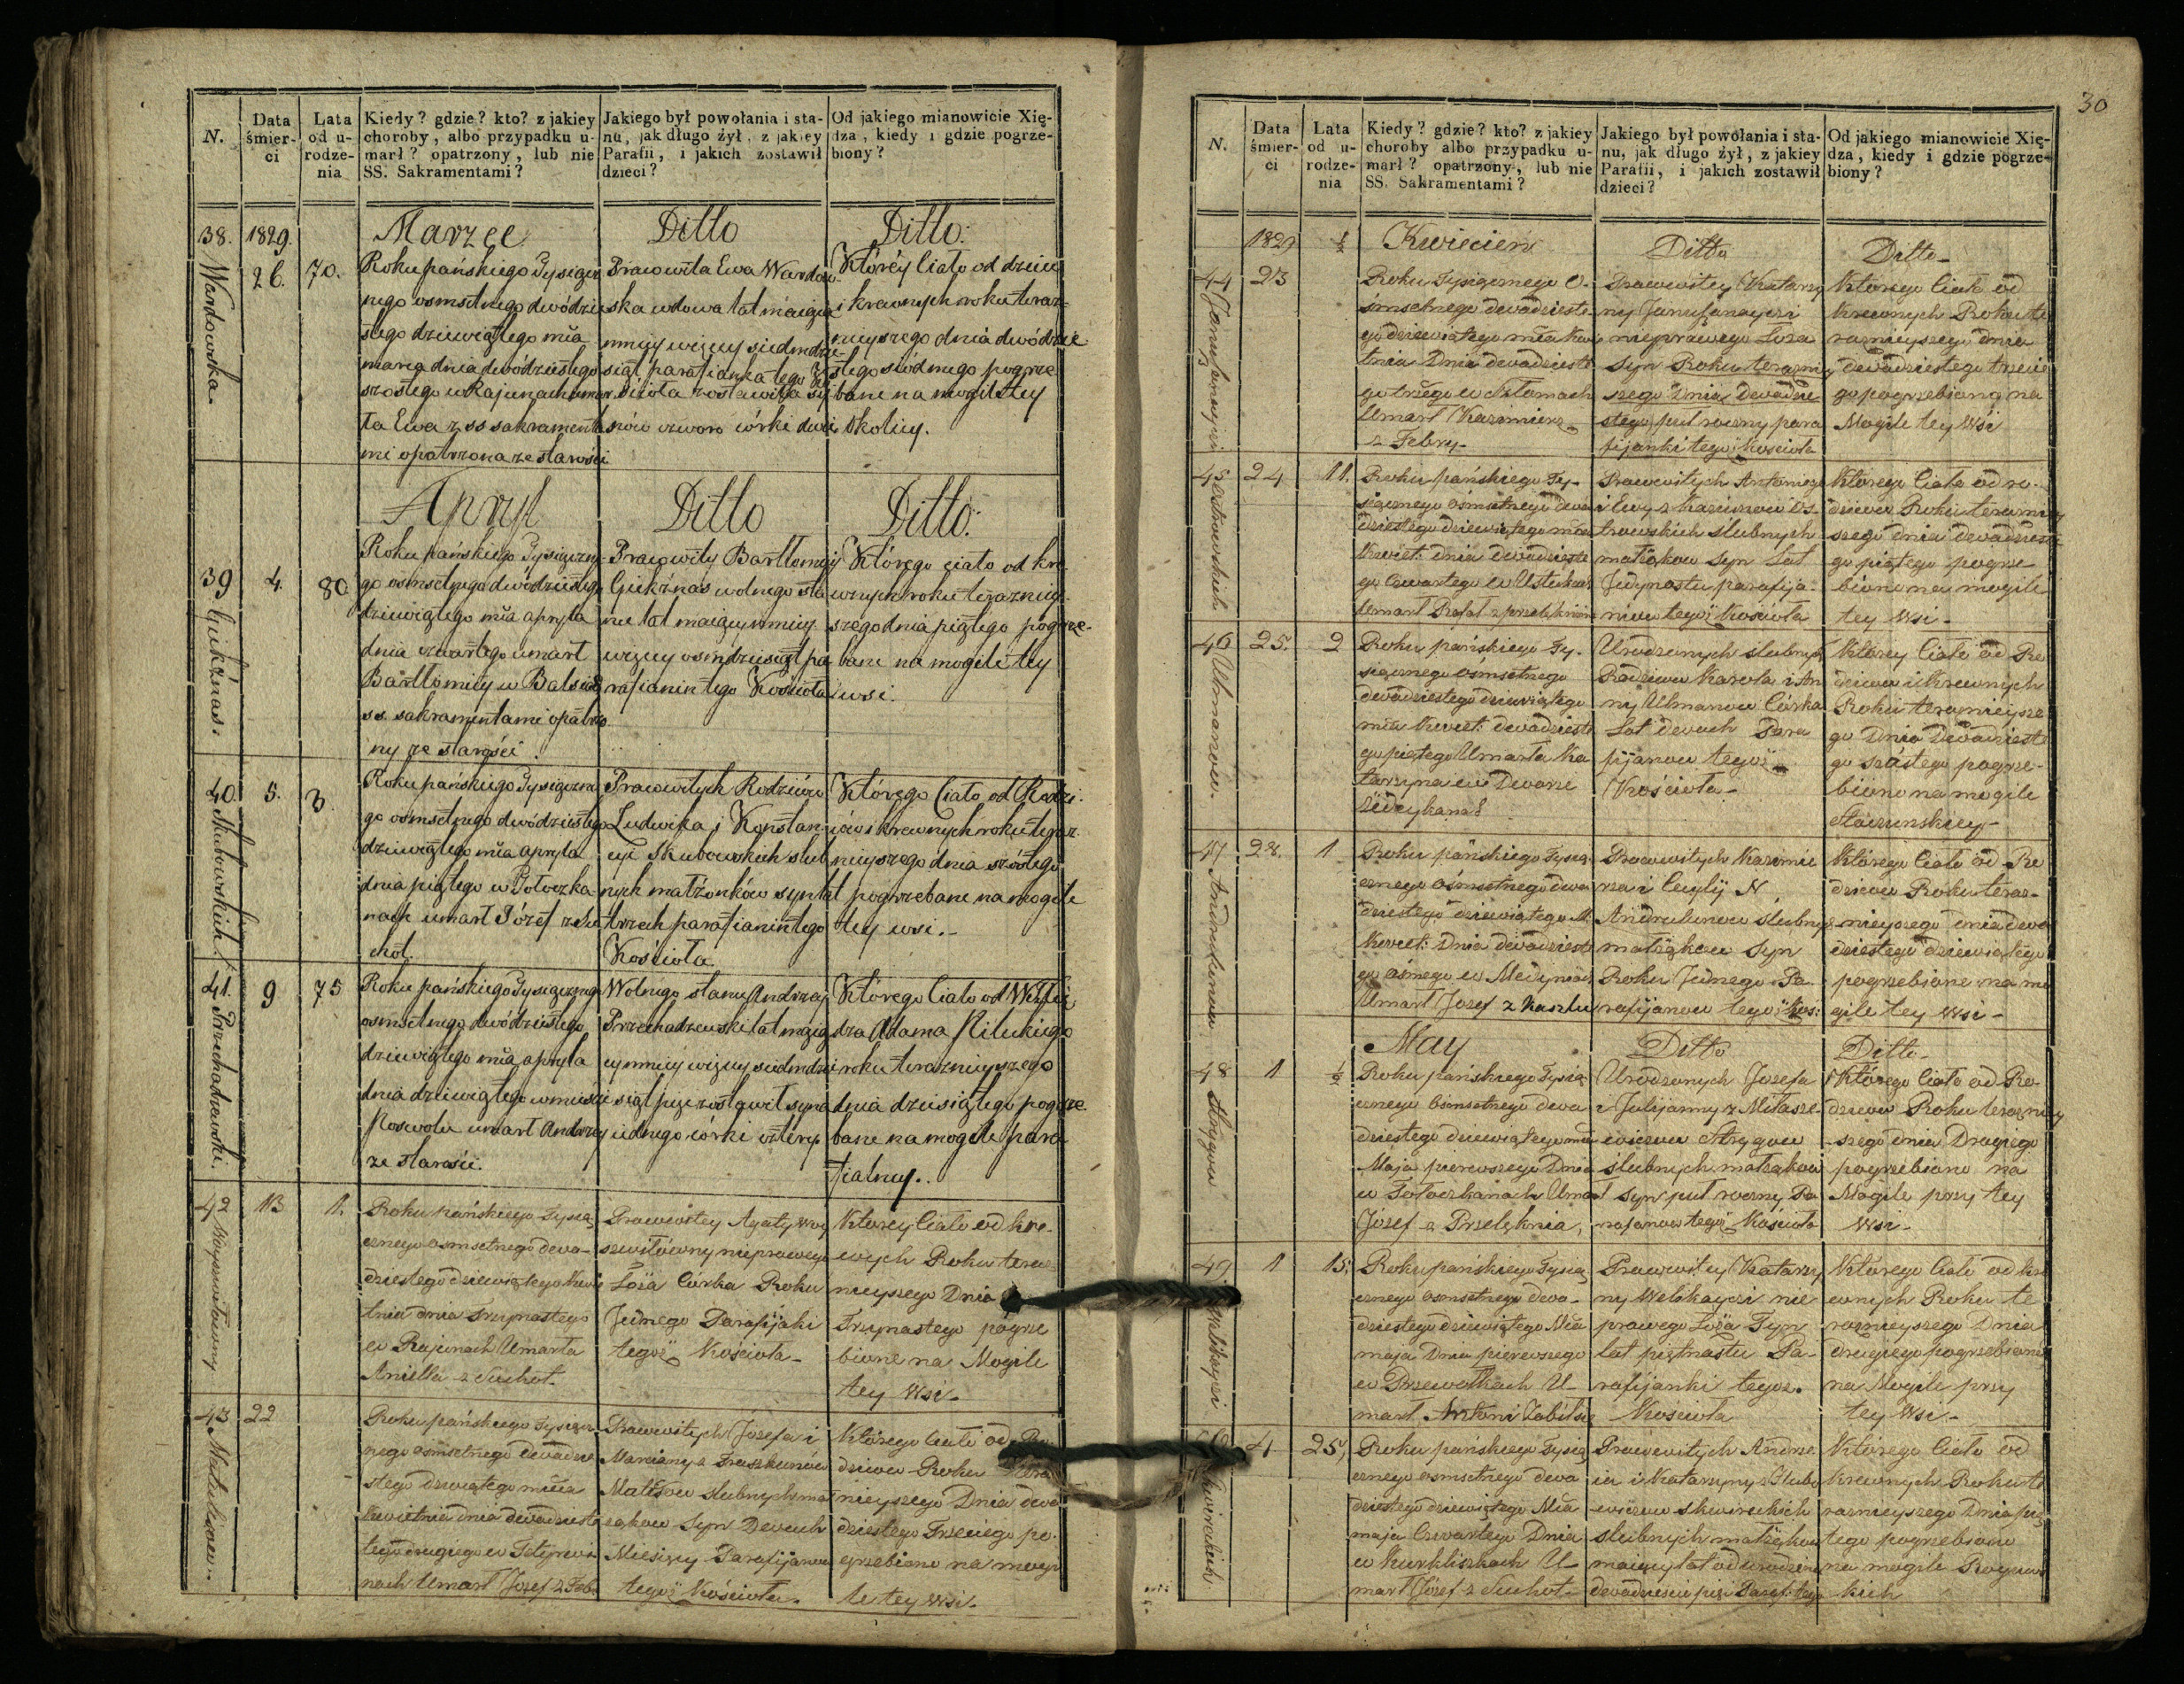 N.
Data śmier- ci
Lata od u- rodze- nia
Kiedy? gdzie? kto? z jakiey
choroby, albo przypadku u-
marł? opatrzony, lub nie
SS. Sakramentami?
Jakiego był powołania i sta-
nu, jak długo żył, z jakiey
Parafii, i jakich zostawił
dzieci?
Od jakiego mianowicie Xię-
dza, kiedy i gdzie pogrze-
biony?
38.
1829.
26.
70.
Marzec
Roku pańskiego Tysiącz
nego osmsetnego dwódzie
stego dziewiątego mca
marca dnia dwódziestego
szóstego w Rajunach umar
ła Ewa z ss sakramenta
mi opatrzona ze starości
Ditto
Pracowita Ewa Wardow
ska wdowa lat maiąca
mniey więcey siedmdzie
siąt parafianka tego Ko
ścioła zostawiła sy
nów czworo córki dwie
Ditto.
Którey Ciało od dzieci
i krewnych roku teraz
nieyszego dnia dwódzie
stego siódmego pogrze
bane na mogile tey
okolicy.
Wardowska.
April
39
4.
80
Roku pańskiego Tysiączne
go osmsetnego dwódziestego
dziewiątego mca apryla
dnia czwartego umarł
Bartłomiey w Balsiach
ss. sakramentami opatrzo
ny ze starości
Ditto
Pracowity Bartłomiey
Giekżnas wolnego sta
nu lat maiący mniey
więcey osmdziesiąt pa
rafianin tego Kościoła
Ditto.
Którego ciało od kre
wnych roku teraźniey
szego dnia piątego pogrze-
bane na mogile tey
wsi.
Giekżnas.
40.
5.
3.
Roku pańskiego Tysiączne
go osmsetnego dwódziestego
dziewiątego mca apryla
dnia piątego w Tołoczka
nach umarł Józef z Su
chot.
Pracowitych Rodziców
Ludwika i Konstan
cyi Skubowskich slub
nych małżonków syn lat
trzech parafianin tego
Kościoła.
Którego Ciało od Rodzi-
ców i krewnych roku teraz
nieyszego dnia szóstego
pogrzebane na mogile
tey wsi.-
Skubowskich.
41.
9
75
Roku pańskiego Tysiącznego
osmsetnego dwódziestego
dziewiątego mca apryla
dnia dziewiątego w mieście
Poswolu umarł Andrzey
ze starości.
Wolnego stanu Andrzey
Przechadzewski lat maią
cy mniey więcey siedmdzie
siąt pięć zostawił syna
iednego córki cztery
Którego Ciało od Xię
dza Adama Rilukiego
roku teraznieyszego
dnia dziesiątego pogrze-
bane na mogile para
fialney..
Przechadzewski.
42
13
1.
Roku pańskiego Tysią
cznego osmsetnego dwa-
dziestego dziewiątego Kwie
tnia dnia Trzynastego
w Rajunach Umarła
Aniella z Suchot.
Pracowitey Agaty Woy
szwiłówny nieprawego
Łoża Córka Roku
Jednego Parafijaki
tegoż Kościoła-
Ktorey Ciało od kre-
wnych Roku teraz
nieyszego Dnia
Trzynastego pogrze
bione na Mogile
tey Wsi-
43
22
Roku pańskiego Tysiącz
nego osmsetnego dwadzie
stego dziewiątego mca
Kwietnia dnia dwadzieste
tego drugiego w Tetyrwi
nach Umarł Jozef z Febr
Pracowitych Jozefa i
Maryanny z Traszkunów
Malisow slubnych mał
żąkow Syn Dwuch
Miesięcy Parafijanow
tegoż Kościoła.
Którego Ciało od Ro
dzicow Roku Teraz
nieyszego Dnia dwa
dziestego Trzeciego po-
grzebione na mogi
le tey wsi.
30
N.
Data śmier- ci
Lata od u- rodze- nia
Kiedy? gdzie? kto? z jakiey
choroby albo przypadku u-
marł? opatrzony, lub nie
SS. Sakramentami?
Jakiego był powołania i sta-
nu, jak długo żył, z jakiey
Parafii, i jakich zostawił
dzieci?
Od jakiego mianowicie Xię-
dza, kiedy i gdzie pogrze-
biony?
1829
½
Kwiecień
Ditto
Ditto-
44
23
Roku Tysiącznego O-
śmsetnego dwadzieste-
go dziewiątego mca kwie
tnia Dnia dwadzieste
go trzego w
Umarł Kazimierz
z Febry-
Pracowitey Katarzy
ny
nieprawego Łoża
Syn Roku terazniey
szego Dnia Dwadzie
stego puł roczny para
fijanki tegoż Kościoła
Ktorego Ciało od
Krewnych Roku te
raznieyszego dnia
dwadziestego trzecie
go pogrzebiona na
Mogile tey Wsi
45
24
11.
Roku pańskiego Ty-
siącznego ośmsetnego dwa
dziestego dziewiątego mca
Kwiet: dnia dwadzieste
go Czwartego w
Umarł Rafał z przelęknie
Pracowitych Antoniego
i Ewy z
trowskich slubnych
małżąkow syn Lat
Jedynastu parafija-
now tegoż Kościoła
Ktorego Ciało od ro-
dzicow Roku teraźniey
szego dnia dwadzieste
go piątego pogrze
biono na mogile
tey wsi-
46
25.
2
Roku pańskiego Ty-
siącznego ośmsetnego
dwadziestego dziewiątego
mca Kwiet: dwadzieste
go piątego Umarła Ka
tarzyna w Dworze
Urodzonych slubnych
Rodzicow Karola i An
ny Ulmanow Córka
Lat dwuch Para
fijanow tegoż
Kościoła-
Ktorey Ciało od Ro
dzicow i Krewnych
Roku teraznieysze
go Dnia Dwadzieste
go szóstego pogrze-
biono na mogile
Ulmanow.
47
28.
1
Roku pańskiego Tysią
cznego ośmsetnego dwa
dziestego dziewiątego M.
Kwiet: Dnia dwadzieste
go osmego w
Umarł Jozef z Kaszlu
Pracowitych Kazimie
rza i Cecylij N
Andrulunow slubny
małżąkow Syn
Roku Jednego Pa-
rafijanow tegoż Kos:
Którego Ciało od Ro
dzicow Roku teraz-
nieyszego dnia dwa
dziestego dziewiątego
pogrzebione na mo
gile tey Wsi-
Andrulunow
May
Ditto
Ditto-
48
1
½
Roku pańskiego Tysią
cznego Osmsetnego dwa
dziestego dziewiątego mca
Maja pierwszego Dnia
w Tołoczkanach Umarł
Józef z Przelęknia,
Urodzonych Jozefa
i Julijanny z Milasze-
wiczow Strygow
slubnych małżąkow
Syn puł roczny Pa
rafanow tegoż Kościoła
Którego Ciało od Ro-
dzicow Roku terazniey
szego dnia Drugiego
pogrzebiono na
Mogile przy tey
Wsi-
Strygow
49
1
15.
Roku pańskiego Tysią
cznego osmsetnego dwa-
dziestego dziewiątego Mca
maja Dnia pierwszego
w Przewałkach U-
marł Antoni
Pracowitey Katarzy
ny Welskayci nie
prawego Łoża Syn
lat piętnastu Pa-
rafijanki tegoż.
Kościoła
Którego Ciało od kre
wnych Roku te
raznieyszego Dnia
drugiego pogrzebiono
na Mogile przy
tey Wsi-
4
25,
Roku pańskiego Tysią
cznego osmsetnego dwa
dziestego dziewiątego Mca
maja Czwartego Dnia
w Kurkliszkach U-
marł Józef z Suchot-
Pracowitych Andrze
ia i Katarzyny z
ewiczow skwireckich
slubnych małżąkow
maiący lat od urodzenia
dwadzieścia pięć Paraf: tego
Ktorego Ciało od
Krewnych Roku te
raznieyszego Dnia pią
tego pogrzebiono
na mogile